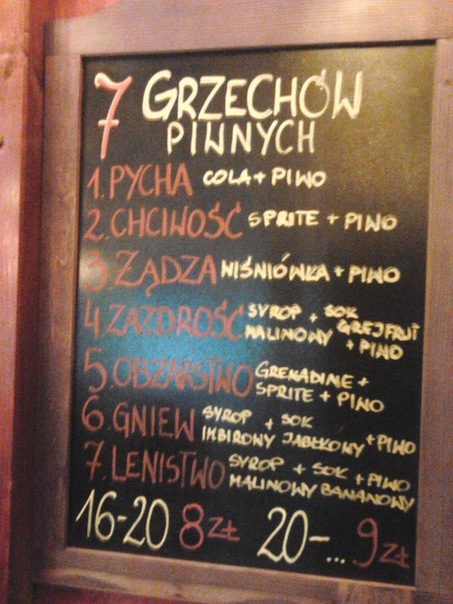 7 GRZECHÓW
PIWNYCH
1. PYCHA COLA + PIWO
2. CHCIWOŚĆ SPRITE + PIWO
3 ŻĄDZA WIŚNIÓWKA + PIWO
4 ZAZDROŚĆ SYROP + SOK
MALINOWY GREJFRUT
+ PIWO
5. OBŻARSTWO GRENADINE +
SPRITE + PIWO
6. GNIEW SYROP + SOK
IMBIROWY JABŁKOWY + PIWO
7. LENISTWO SYROP + SOK + PIWO
MALINOWY BANANOWY
16-20 8 ZŁ 20-... 9 ZŁ